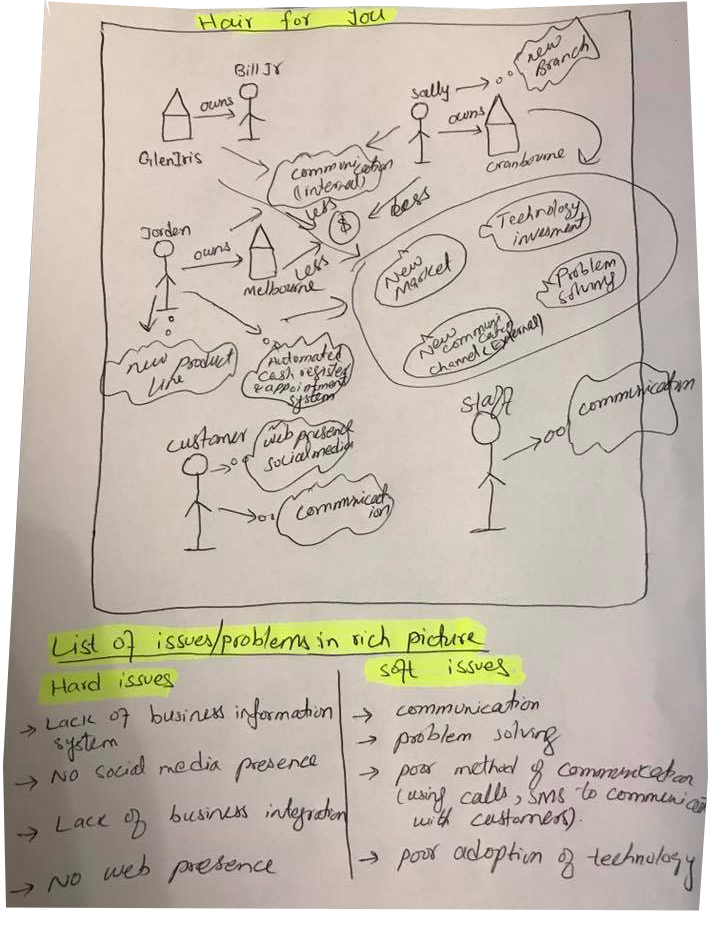 Hair for You
Bill Jr
owns
Glen Iris
Sally
new
Branch
owns
Cranbourne
communi
cation
(internal)
Less
$
Less
Jorden
owns
Melbourne
Less
Technology
invesment
New
Market
Problem
solving
New communi
cation
channel (External)
new product
Line
Automated
cash register
& appointment
system
Staff
communication
customer
web presence
social media
communicat
ion
List of issues/problems in rich picture
Hard issues
→ Lack of business information
system
→ NO social media presence
→ Lack of business integration
→ NO web presence
soft issues
→ communication
→ problem solving
→ poor method of communication
(using calls, SMS to communicate
with customers).
→ poor adoption of technology